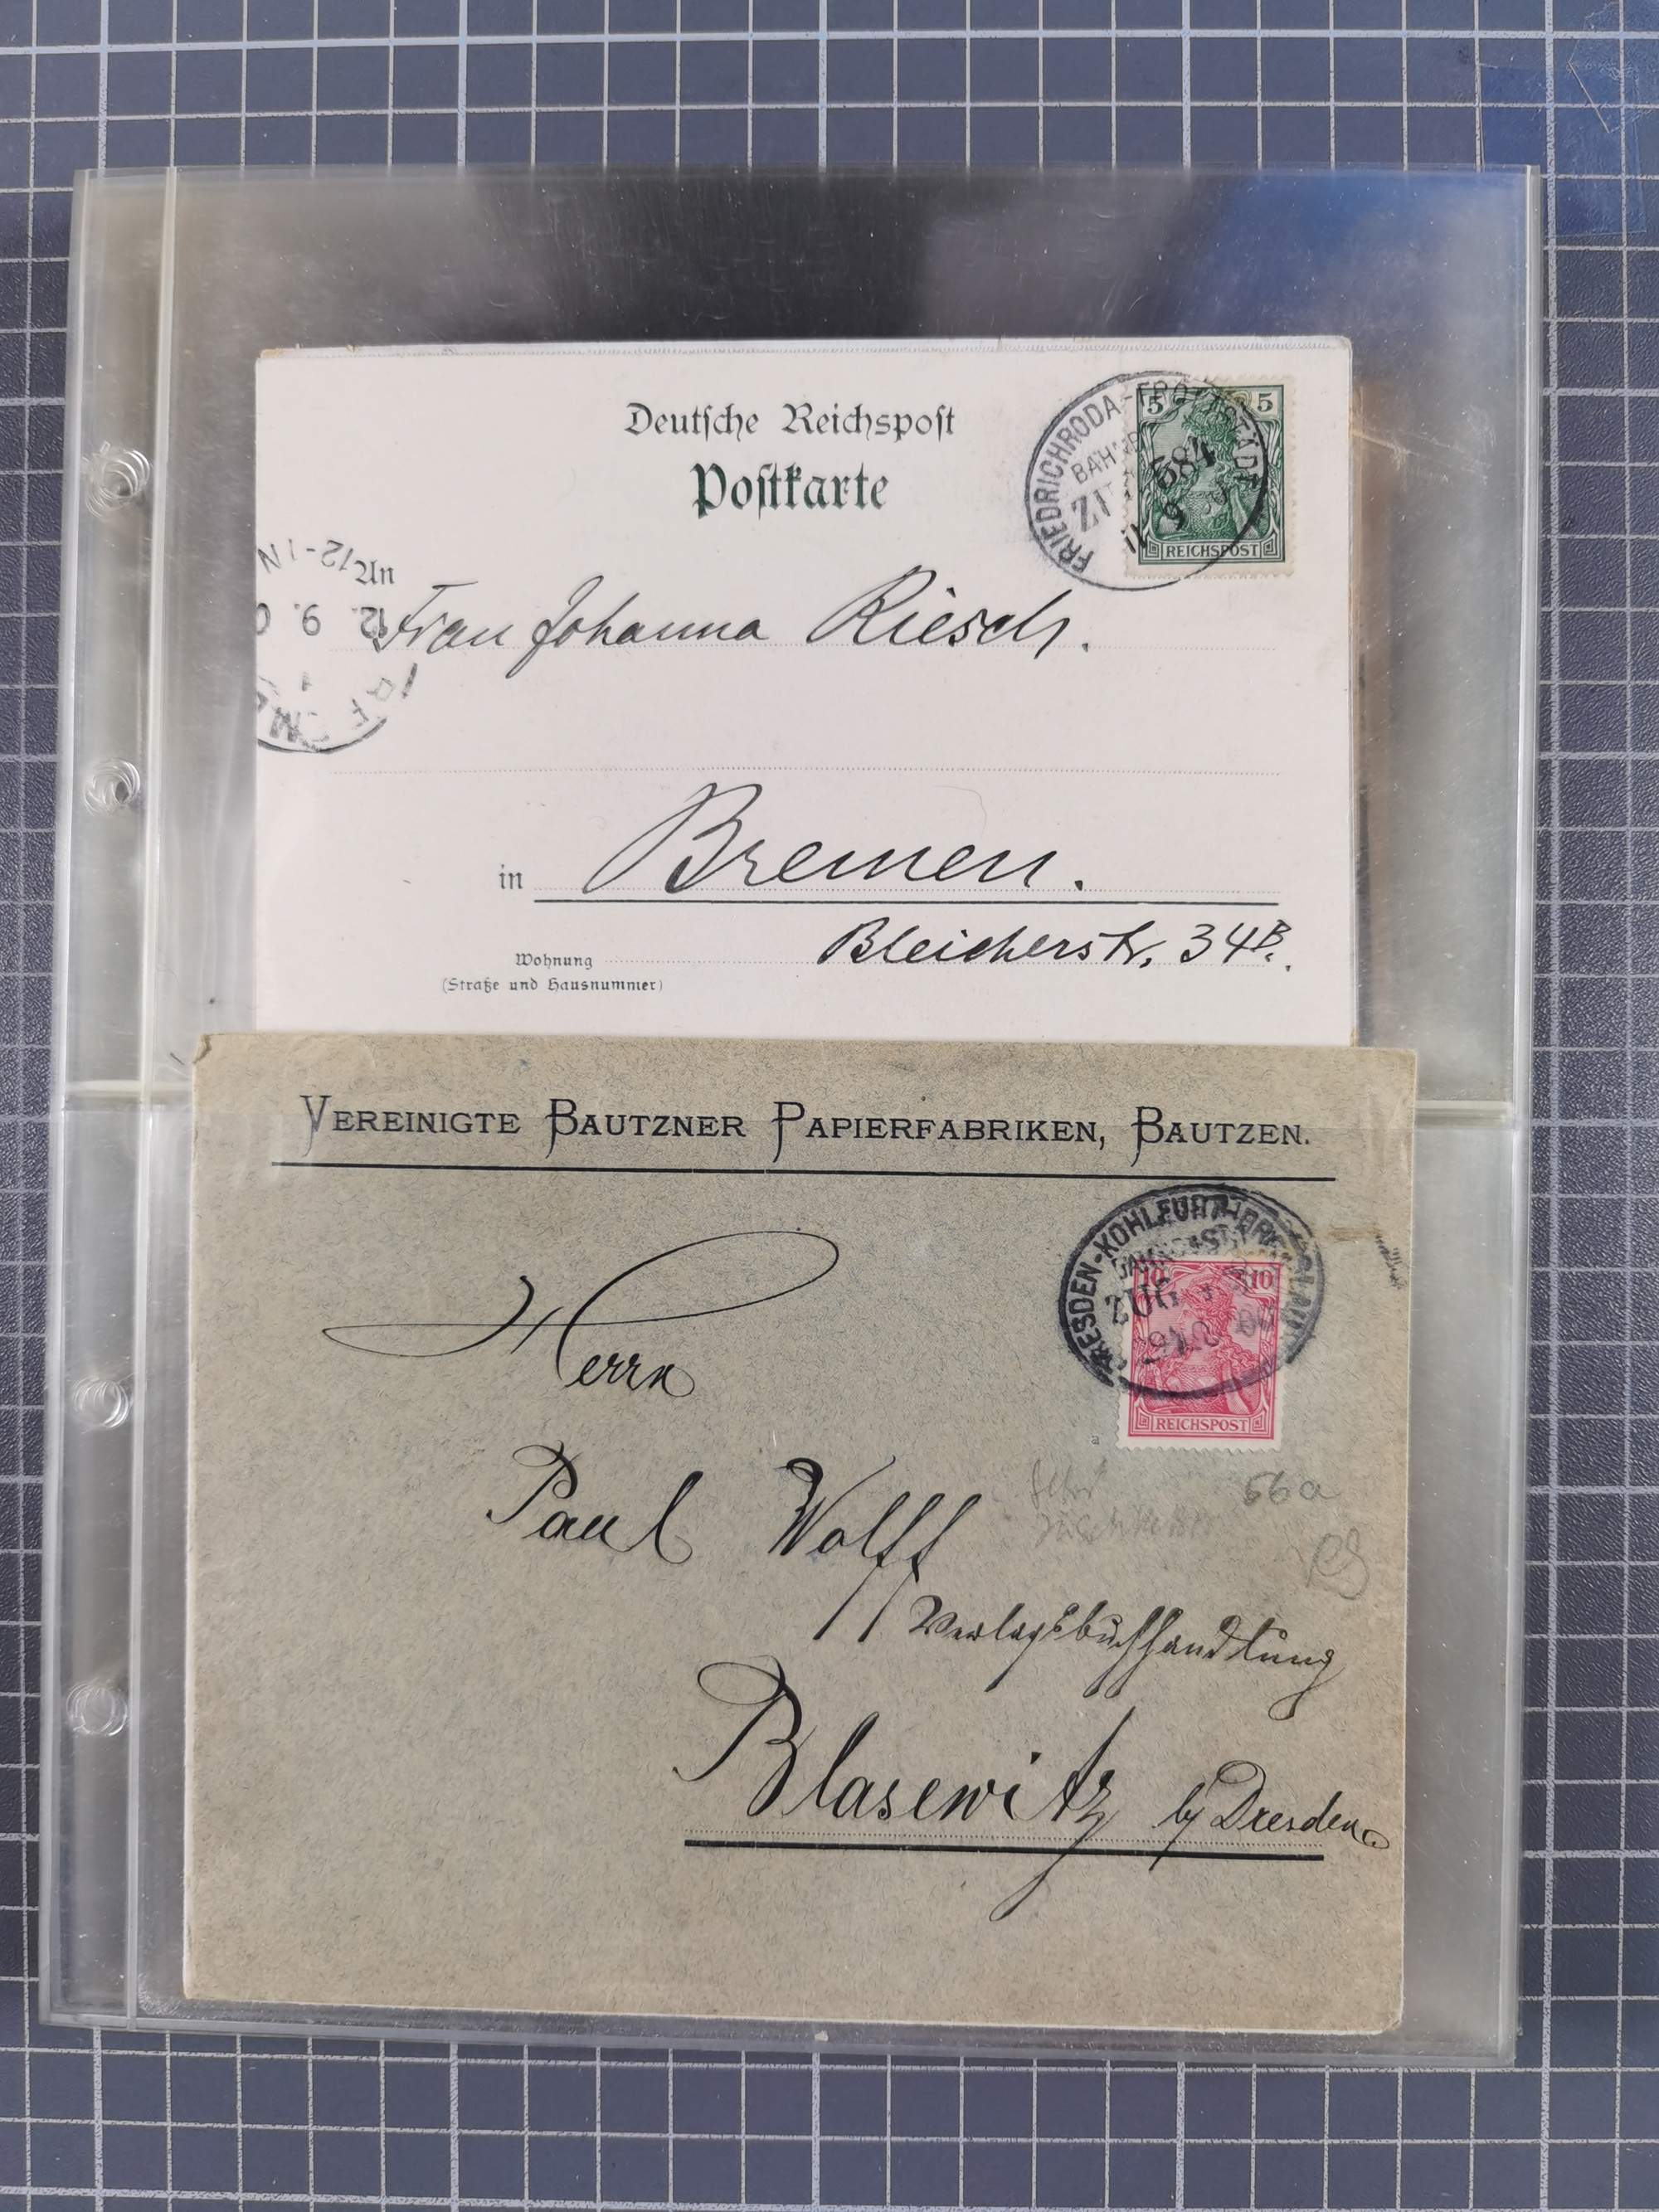 Deutsche Reichspost
Postkarte
FRIEDRICHRODA-FRÖTTSTÄDT
BAHNP
ZUG 584
11 9
5 5
REICHSPOST
12-1N
12. 9. 0
An
Frau Johanna Riesch.
in Bremen.
Bleicherstr. 34B.
Wohnung
(Straße und Hausnummer)
VEREINIGTE BAUTZNER PAPIERFABRIKEN, BAUTZEN.
DRESDEN-KOHLFURT-BRESLAU
ZUG
10 10
REICHSPOST
Herrn
Paul Wolff
66a
Verlagsbuchhandlung
Blasewitz b/Dresden